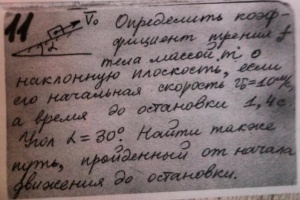 11 V̅₀ Определить коэф-
α фициент трения f
тела массой m о
наклонную плоскость, если
его начальная скорость v₀=10м/с,
а время до остановки 1,4с
Угол α=30°. Найти также
путь, пройденный от начала
движения до остановки.